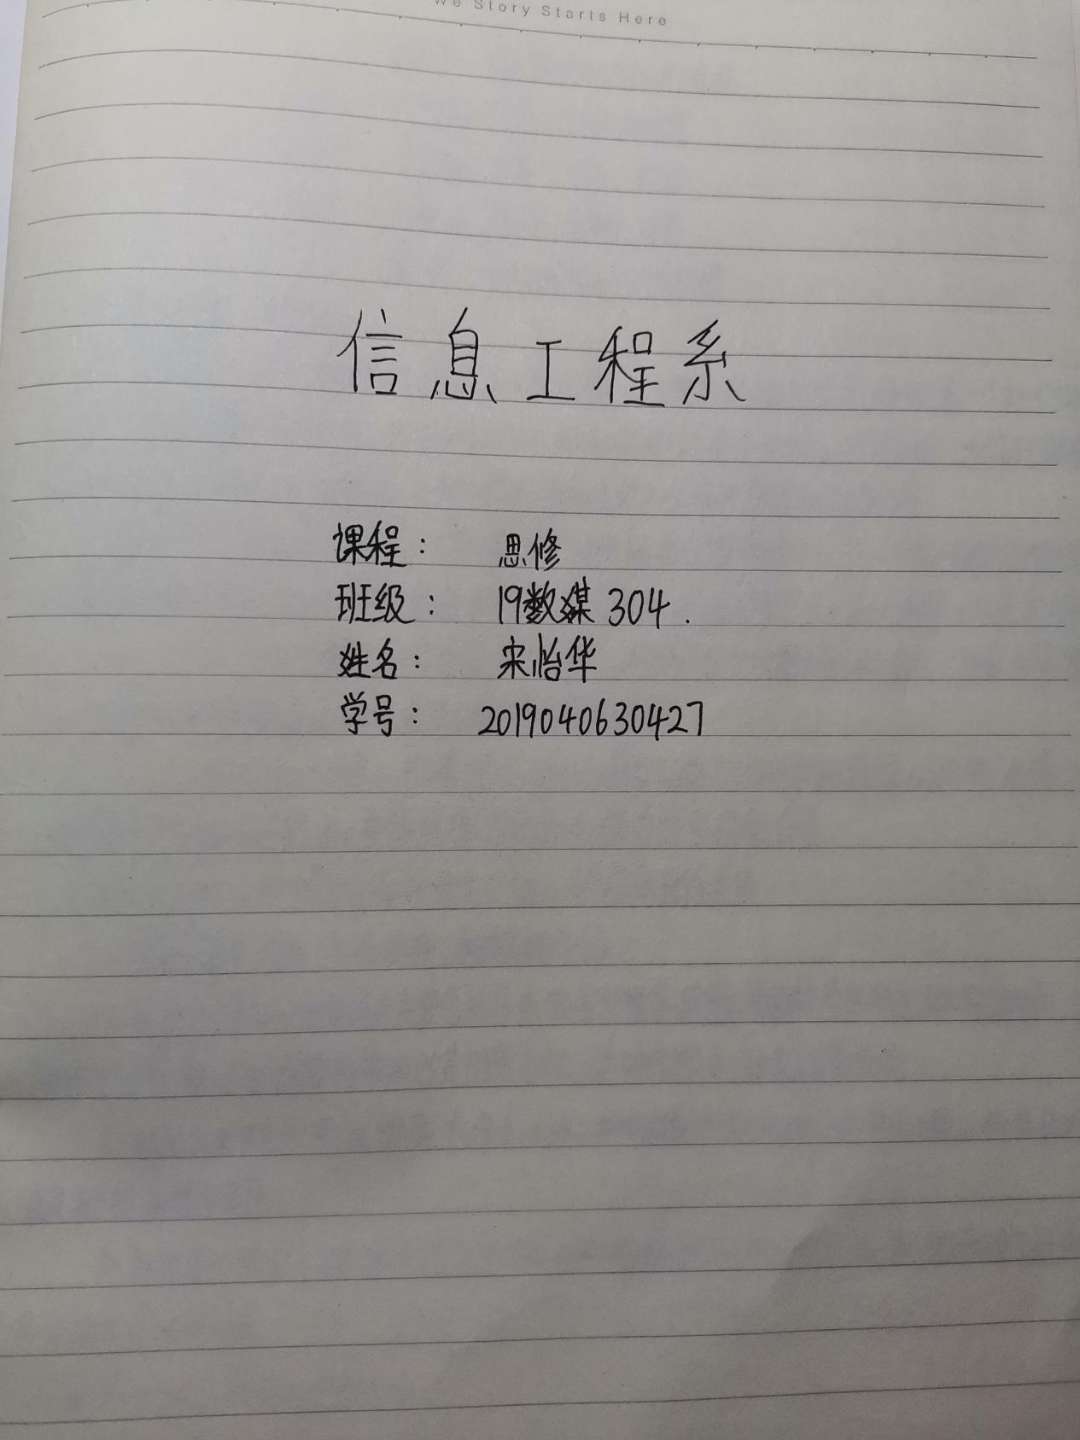 We Story Starts Here
信息工程系
课程： 思修
班级： 19数媒304.
姓名： 宋怡华
学号： 2019040630427